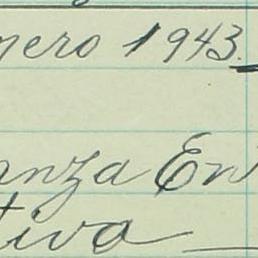 nero 1943.
anza En
tiva